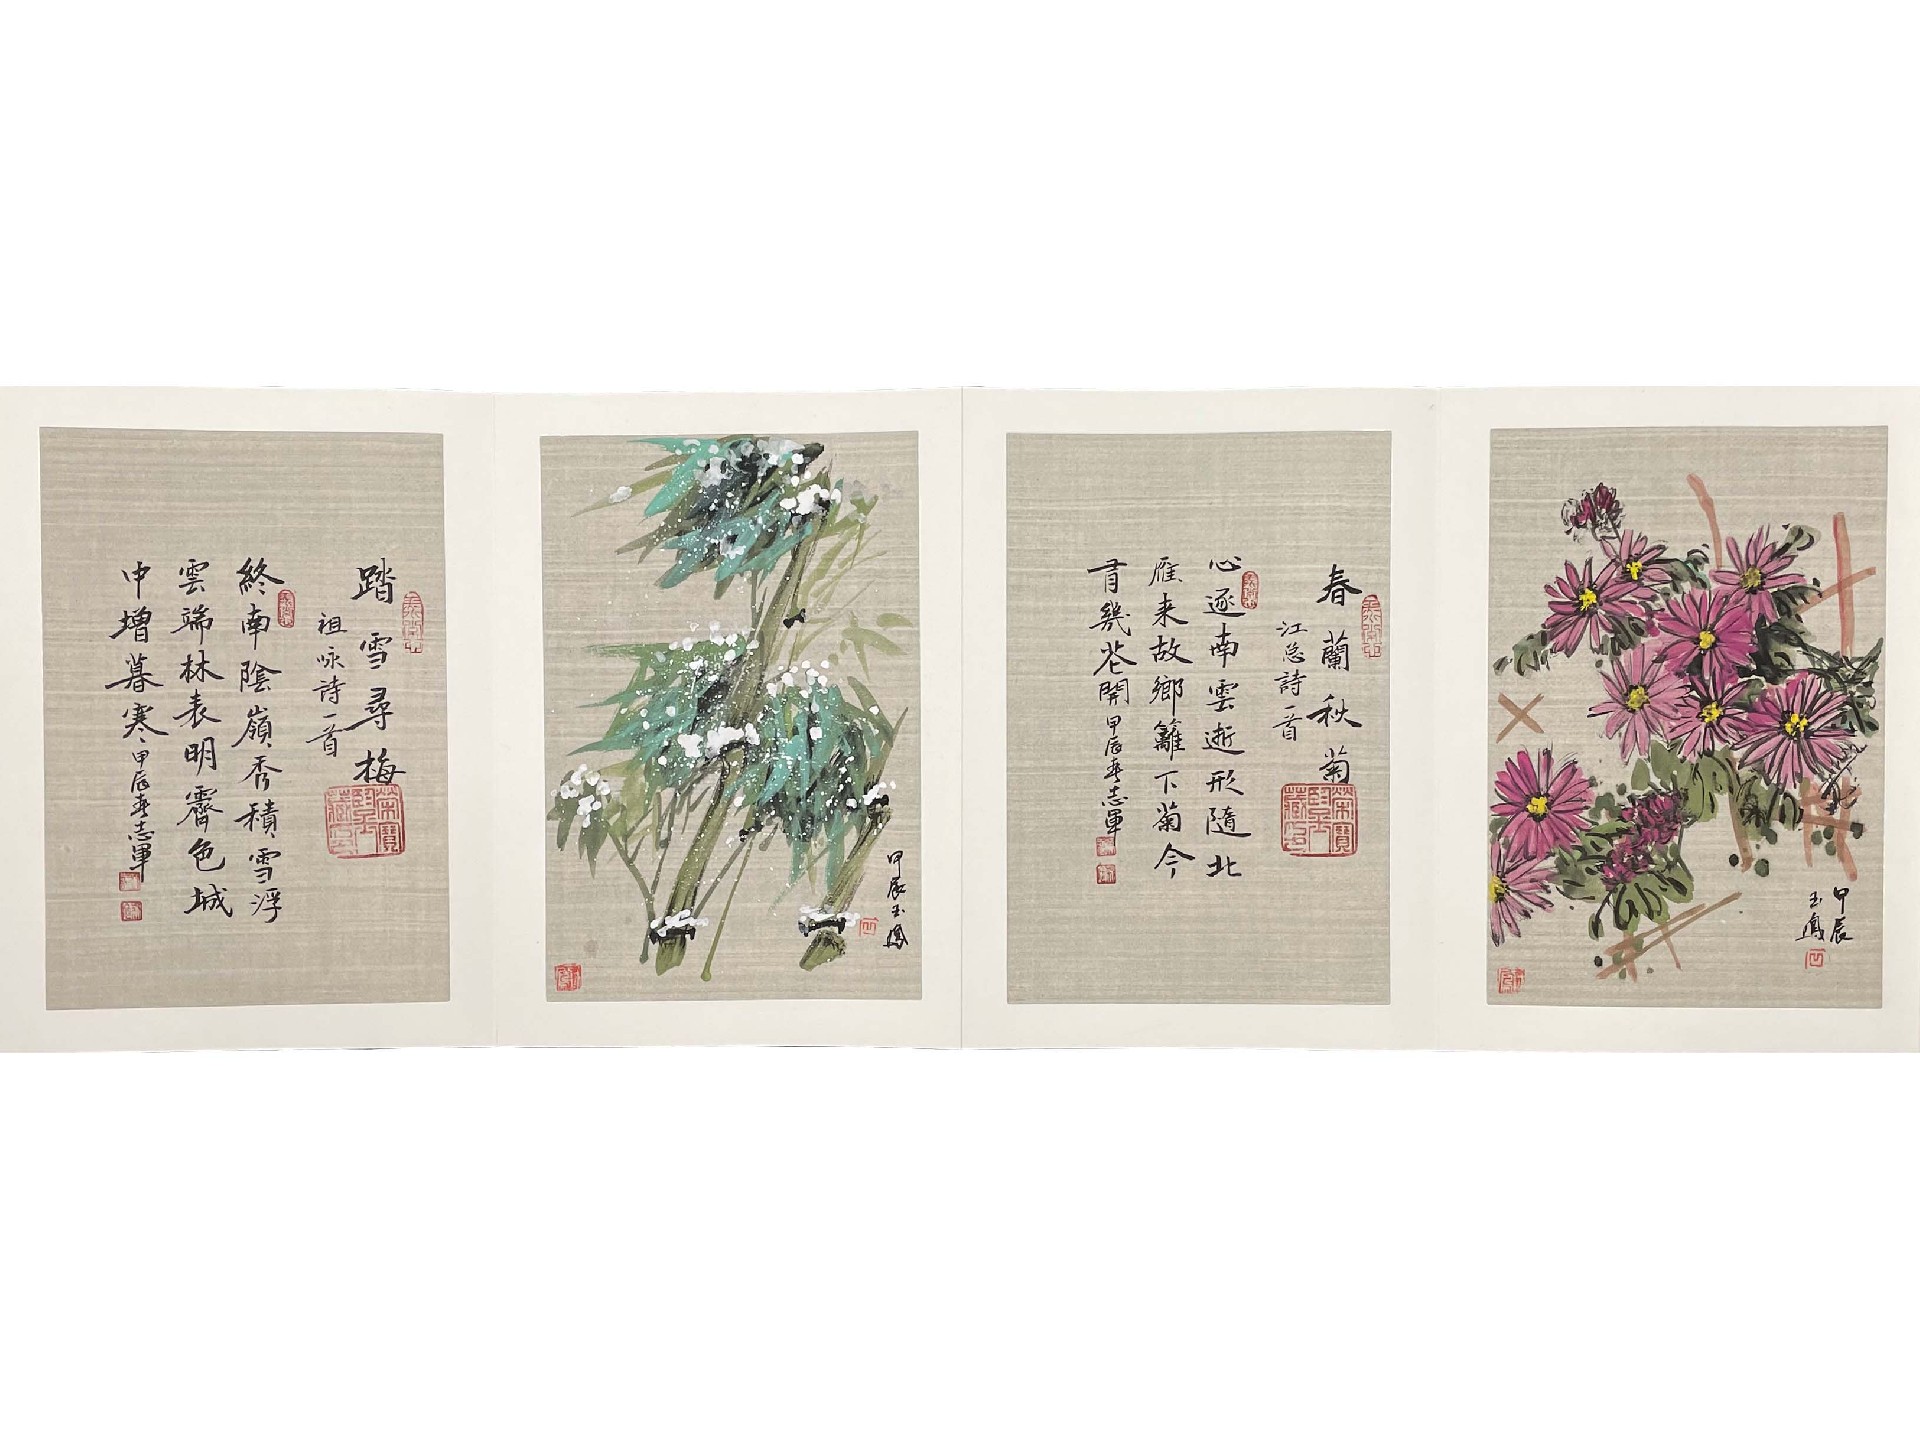 甲辰
玉鳳
春蘭秋菊
江总詩一首
心逐南雲逝形隨北
雁来故鄉籬下菊今
幾花開 甲辰春志軍
甲辰玉鳳
踏雪尋梅
祖咏詩一首
終南陰嶺秀積雪浮
雲端林表明霽色城
中增暮寒 甲辰春志軍